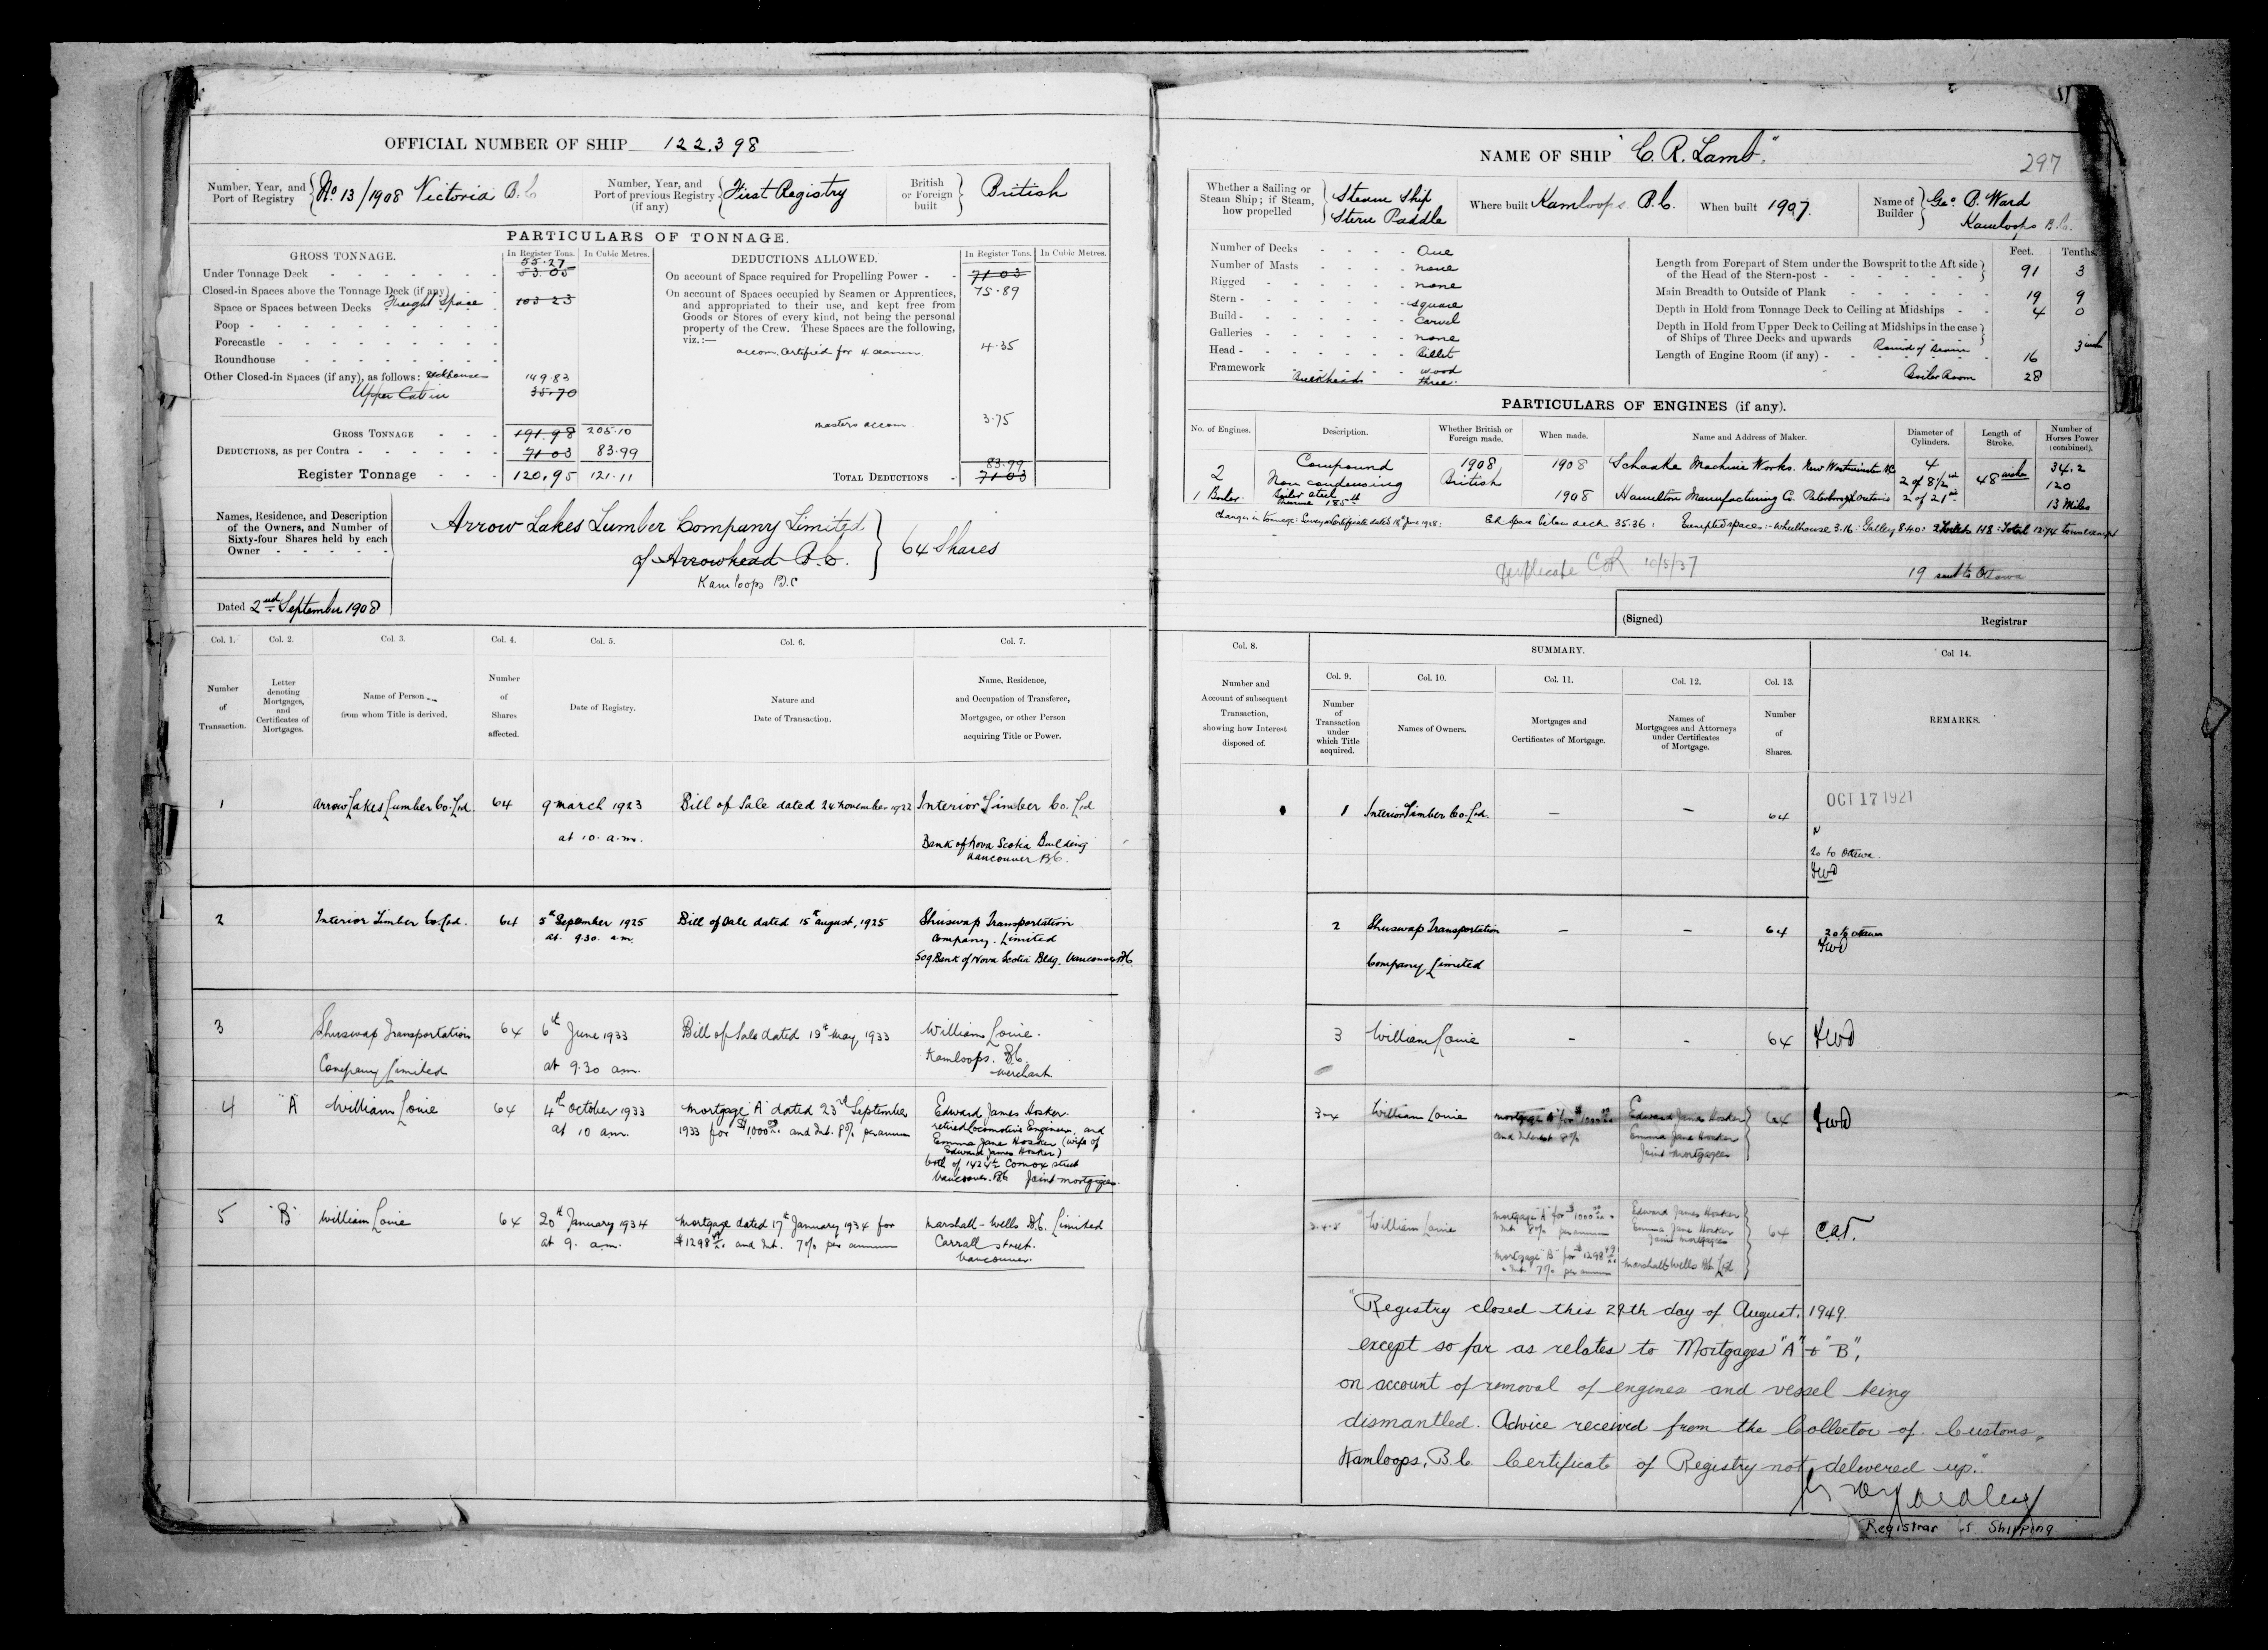 OFFICIAL NUMBER OF SHIP 122,398
Number, Year, and Port of Registry No 13/1908 Victoria B.C
Number, Year, and Port of previous Registry (if any) First Registry
British or Foreign built British
PARTICULARS OF TONNAGE.
GROSS TONNAGE. In Register Tons. In Cubic Metres.
55.27
Under Tonnage Deck 53.05
Closed-in Spaces above the Tonnage Deck (if any)
Space or Spaces between Decks Freight Space 103 23
Poop
Forecastle
Roundhouse
Other Closed-in Spaces (if any), as follows: Deckhouses 149.83
Upper Cabin 35.70
GROSS TONNAGE 191.98 205.10
DEDUCTIONS, as per Contra 71 03 83.99
Register Tonnage 120.95 121.11
DEDUCTIONS ALLOWED. In Register Tons. In Cubic Metres.
On account of Space required for Propelling Power 71.03
75.89
On account of Spaces occupied by Seamen or Apprentices,
and appropriated to their use, and kept free from
Goods or Stores of every kind, not being the personal
property of the Crew. These Spaces are the following,
viz.:—
accom. Certified for 4 seamen 4.35
masters accom. 3.75
83.99
TOTAL DEDUCTIONS 71 03
Names, Residence, and Description
of the Owners, and Number of
Sixty-four Shares held by each
Owner
Arrow Lakes Lumber Company Limited
of Arrowhead B.C. 64 Shares
Kamloops B.C
Dated 2nd September 1908
Col. 1. Col. 2. Col. 3. Col. 4. Col. 5. Col. 6. Col. 7.
Number of Transaction.
Letter denoting Mortgages, and Certificates of Mortgages.
Name of Person from whom Title is derived.
Number of Shares affected.
Date of Registry.
Nature and Date of Transaction.
Name, Residence, and Occupation of Transferee, Mortgagee, or other Person acquiring Title or Power.
1 Arrow Lakes Lumber Co. Ltd. 64 9 March 1923 Bill of Sale dated 24 November 1922 Interior Timber Co. Ltd
at 10. a.m. Bank of Nova Scotia Building
Vancouver B.C.
2 Interior Timber Co. Ltd. 64 5th September 1925 Bill of Sale dated 15th August, 1925 Shuswap Transportation
at 9.30. a.m. Company. Limited
509 Bank of Nova Scotia Bldg. Vancouver B.C.
3 Shuswap Transportation 64 6th June 1933 Bill of Sale dated 19th May 1933 William Louie.
Company Limited at 9.30 a.m. Kamloops. B.C.
Merchant
4 "A" William Louie 64 4th October 1933 Mortgage "A" dated 23rd September Edward James Hosker.
at 10 a.m. 1933 for $1000.00 and Int. 8% per annum retired locomotive Engineer, and
Emma Jane Hosker (wife of
Edward James Hosker)
both of 1424 Comox street
Vancouver. B.C. Joint mortgagees.
5 "B" William Louie 64 20th January 1934 Mortgage dated 17th January 1934 for Marshall-Wells B.C. Limited
at 9. a.m. $1298.49 and Int. 7% per annum Carrall street.
Vancouver.
NAME OF SHIP "C. R. Lamb".
297
Whether a Sailing or Steam Ship; if Steam, how propelled Steam Ship
Stern Paddle
Where built Kamloops B.C. When built 1907.
Name of Builder Geo. B. Ward
Kamloops B.C.
Number of Decks One
Number of Masts none
Rigged none
Stern square
Build Carvel
Galleries none
Head Billet
Framework wood
Bulkheads three.
Feet. Tenths.
Length from Forepart of Stem under the Bowsprit to the Aft side
of the Head of the Stern-post 91 3
Main Breadth to Outside of Plank 19 9
Depth in Hold from Tonnage Deck to Ceiling at Midships 4 0
Depth in Hold from Upper Deck to Ceiling at Midships in the case
of Ships of Three Decks and upwards
Round of Beam 3 inch
Length of Engine Room (if any) 16
Boiler Room 28
PARTICULARS OF ENGINES (if any).
No. of Engines. Description. Whether British or Foreign made. When made. Name and Address of Maker. Diameter of Cylinders. Length of Stroke. Number of Horses Power (combined).
2 Compound 1908 1908 Schaake Machine Works. New Westminster B.C. 4 48 inches 34.2
Non condensing British 2 of 8½ in 120
1 Boiler. Boiler steel 185 lb 1908 Hamilton Manufacturing Co. Peterborough Ontario 2 of 21 in 13 Miles
Changes in tonnage: Surveyors Certificate dated 18th June 1908: E.R. Space below deck 35.36: Exempted spaces:- Wheelhouse 3.16: Galley 8.40: 2 Toilets 1.18: Total 12.74 tons
Duplicate CoR 10/5/37
19 sent to Ottawa
(Signed) Registrar
Col. 8. SUMMARY. Col 14.
Col. 9. Col. 10. Col. 11. Col. 12. Col. 13.
Number and Account of subsequent Transaction, showing how Interest disposed of.
Number of Transaction under which Title acquired.
Names of Owners.
Mortgages and Certificates of Mortgage.
Names of Mortgagees and Attorneys under Certificates of Mortgage.
Number of Shares.
REMARKS.
1 Interior Timber Co. Ltd. – – 64 OCT 17 1921
20 to Ottawa.
2 Shuswap Transportation – – 64 20 to Ottawa
Company Limited
3 William Louie – – 64
3-4 William Louie Mortgage "A" for $1000.00 Edward James Hosker 64
and Interest 8% Emma Jane Hosker
Joint Mortgagees
3.4.5 William Louie Mortgage "A" for $1000.00 Edward James Hosker 64 C.A.T.
Int. 8% per annum Emma Jane Hosker
Joint mortgagees
Mortgage "B" for $1298.49 Marshall-Wells B.C. Ltd.
Int. 7% per annum
"Registry closed this 29th day of August, 1949.
except so far as relates to Mortgages "A" + "B",
on account of removal of engines and vessel being
dismantled. Advice received from the Collector of Customs,
Kamloops, B.C. Certificate of Registry not delivered up."
Registrar of Shipping